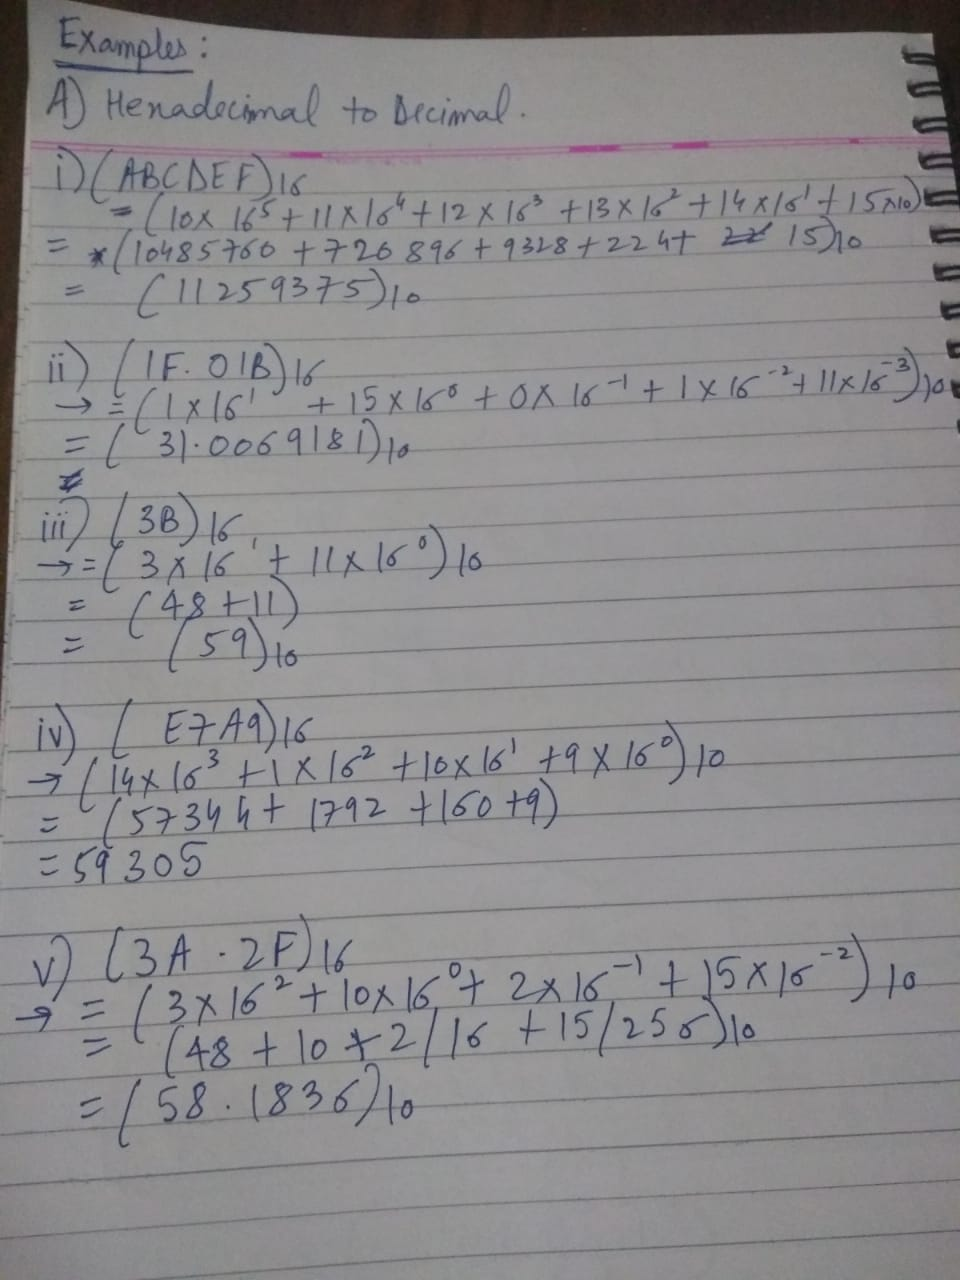 Examples:
A) Hexadecimal to Decimal.
i) (ABCDEF)₁₆
= (10x 16⁵ + 11 x 16⁴ + 12 x 16³ + 13 x 16² + 14 x 16¹ + 15x10)
= (10485760 + 720896 + 9328 + 224 + 15)₁₀
= (11259375)₁₀
ii) (1F. 01B)₁₆
→ = (1 x 16¹ + 15 x 16⁰ + 0 x 16⁻¹ + 1 x 16⁻² + 11 x 16⁻³)₁₀
= (31.0069181)₁₀
iii) (3B)₁₆
→ = (3 x 16¹ + 11 x 16⁰)₁₀
= (48 + 11)
= (59)₁₀
iv) (E7A9)₁₆
→ (14 x 16³ + 1 x 16² + 10 x 16¹ + 9 x 16⁰)₁₀
= (57344 + 1792 + 160 + 9)
= 59305
v) (3A . 2F)₁₆
→ = (3 x 16² + 10 x 16⁰ + 2 x 16⁻¹ + 15 x 16⁻²)₁₀
= (48 + 10 + 2/16 + 15/256)₁₀
= (58.1836)₁₀